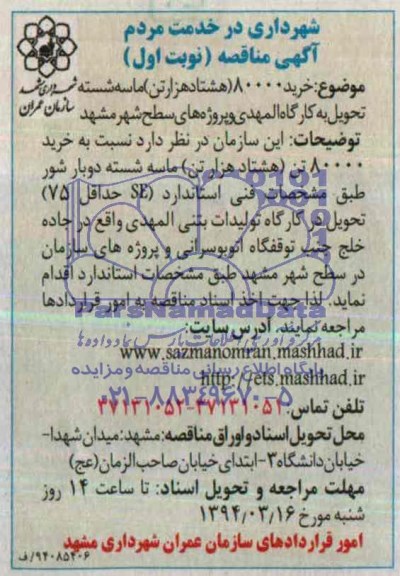 شهرداری در خدمت مردم
آگهی مناقصه (نوبت اول)
شهرداری مشهد
سازمان عمران
موضوع: خرید ۸۰۰۰۰(هشتاد هزار تن) ماسه شسته
تحویل به کارگاه المهدی و پروژه های سطح شهر مشهد
توضیحات: این سازمان در نظر دارد نسبت به خرید
۸۰۰۰۰ تن (هشتاد هزار تن) ماسه شسته دوبار شور
طبق مشخصات فنی استاندارد (SE حداقل ۷۵)
تحویل در کارگاه تولیدات بتنی المهدی واقع در جاده
خلج جنب توقفگاه اتوبوسرانی و پروژه های سازمان
در سطح شهر مشهد طبق مشخصات استاندارد اقدام
نماید. لذا جهت اخذ اسناد مناقصه به امور قراردادها
مراجعه نمایند. آدرس سایت:
www.sazmanomran.mashhad.ir
http://ets.mashhad.ir
تلفن تماس: ۳۷۱۳۱۰۵۱-۳۷۱۳۱۰۵۲
محل تحویل اسناد و اوراق مناقصه: مشهد: میدان شهدا-
خیابان دانشگاه ۳- ابتدای خیابان صاحب الزمان (عج)
مهلت مراجعه و تحویل اسناد: تا ساعت ۱۴ روز
شنبه مورخ ۱۳۹۴/۰۳/۱۶
امور قراردادهای سازمان عمران شهرداری مشهد
۹۴۰۸۵۴۰۶/ف
ParsNamadData
مرکز آوری اطلاعات پارس نماد داده ها
پایگاه اطلاع رسانی مناقصه و مزایده
۰۲۱-۸۸۳۴۹۶۷۰-۵